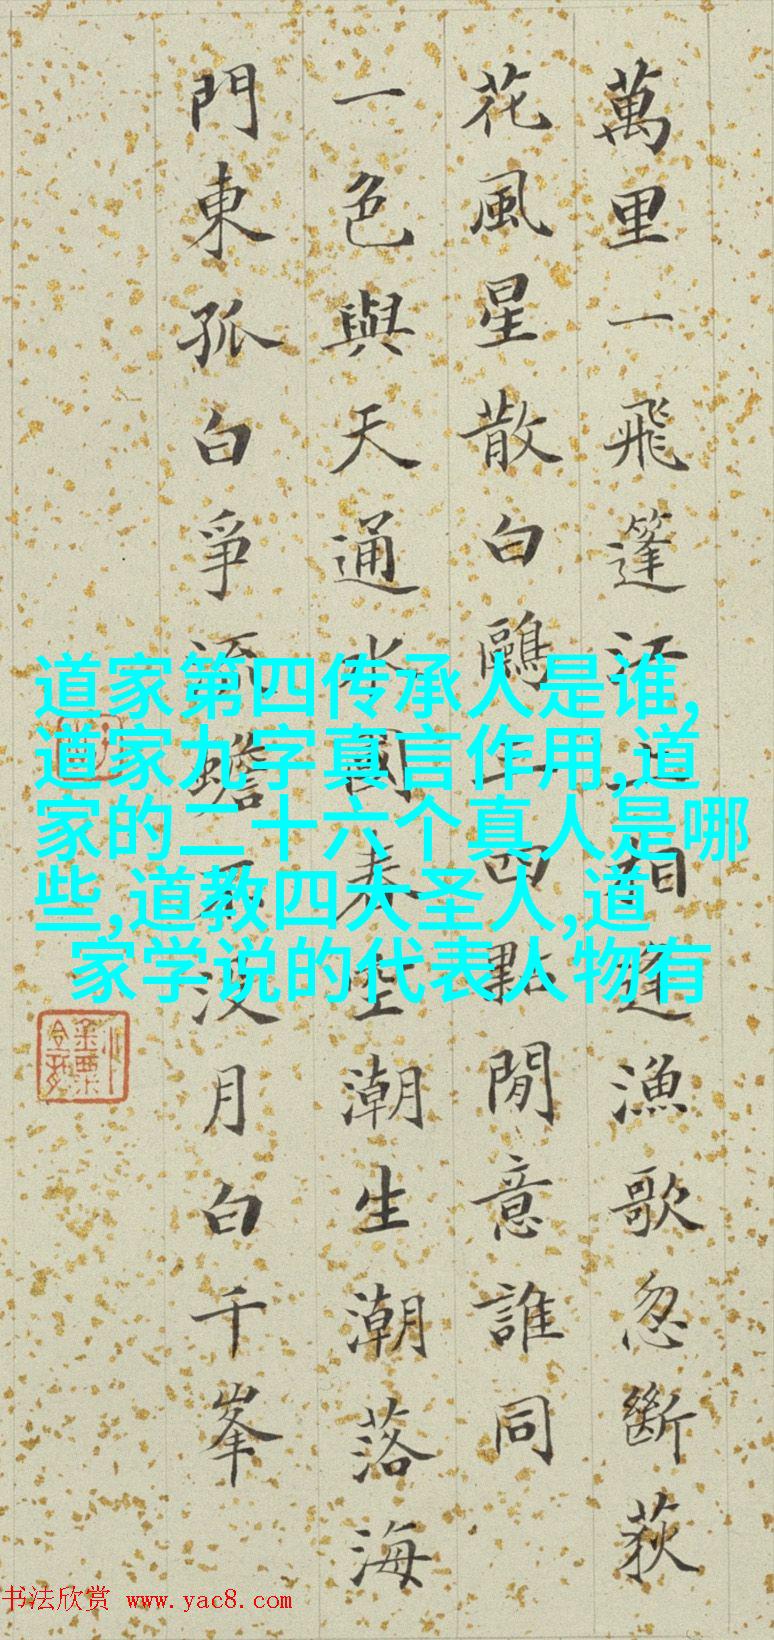 萬里一飛篷江上相逢漁歌忽斷荻
花風星散白鷗三四點閒意誰同
一色與天通水國春空潮生潮落海
門東孤白爭流蟾不沒月白千峯
道家第四传承人是谁,
道家九字真言作用,道
家的二十六个真人是哪
些,道教四大圣人,道
家学说的代表人物有
书法欣赏 www.yac8.com